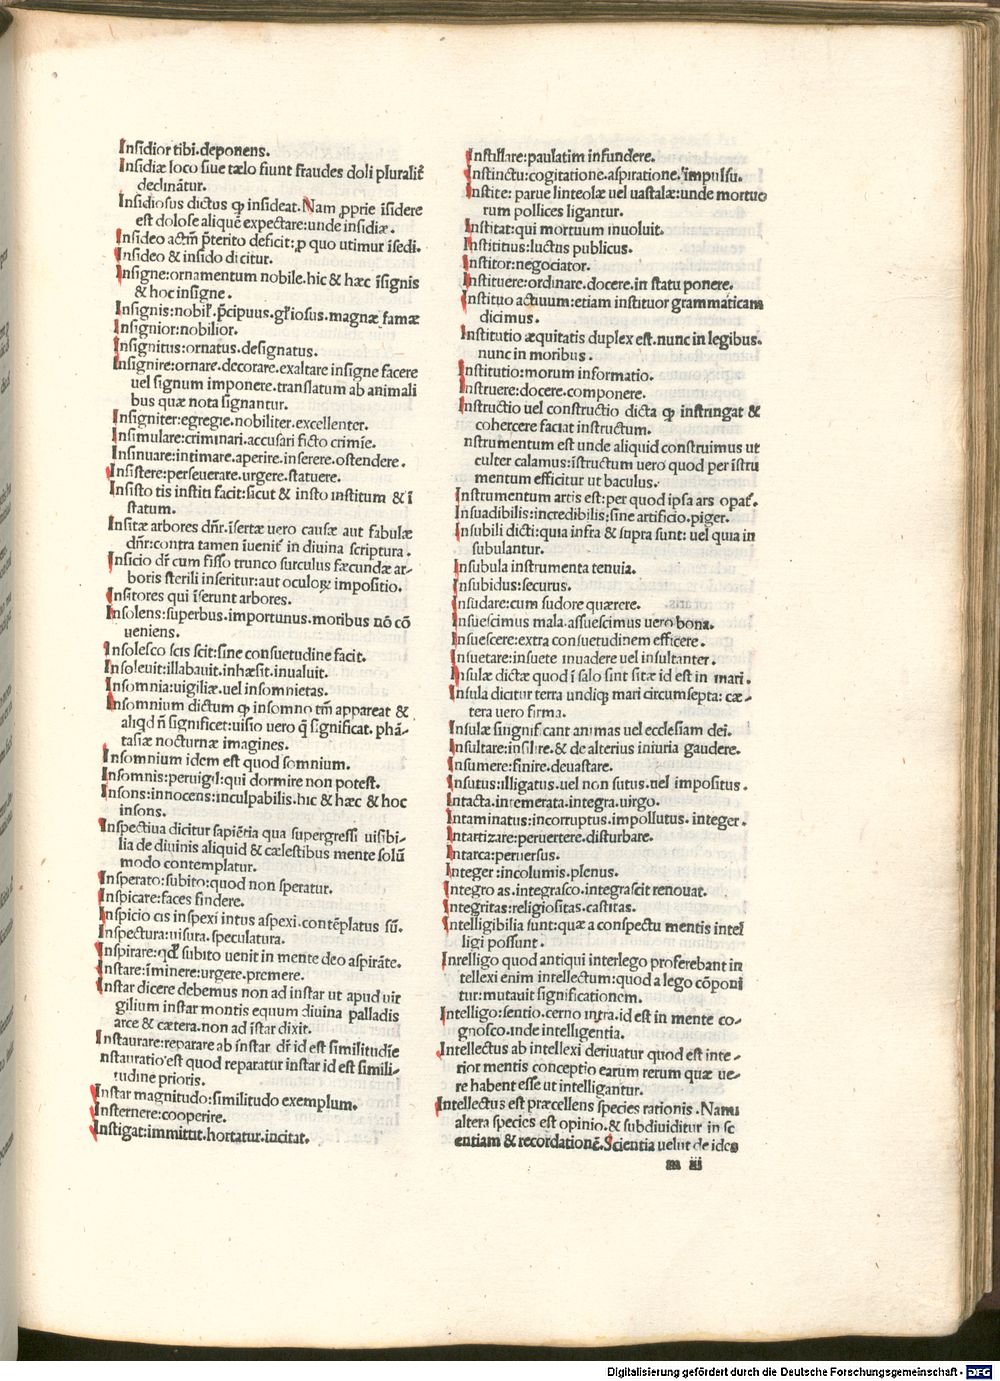 Insidior tibi.deponens.
Insidiæ loco siue tælo fiunt fraudes doli pluralit̃
declinãtur.
Insidiosus dictus ꝙ insideat.Nam ꝓprie ĩsidere
est dolose aliquẽ expectare:unde insidiæ.
Insideo actm̃ p̃terito deficit:ꝓ quo utimur ĩsedi.
Insideo & insido dicitur.
Insigne:ornamentum nobile.hic & hæc ĩsignis
& hoc insigne.
Insignis:nobil̃.p̃cipuus.gl̃iosus.magnæ famæ
Insignior:nobilior.
Insignitus:ornatus.designatus.
Insignire:ornare.decorare.exaltare insigne facere
uel signum imponere.translatum ab animali
bus quæ nota signantur.
Insigniter:egregie.nobiliter.excellenter.
Insimulare:criminari.accusari ficto crimĩe.
Insinuare:intimare.aperire.inserere.ostendere.
Insistere:perseuerate.urgere.statuere.
Insisto tis institi facit:sicut & insto institum & ĩ
statum.
Insitæ arbores dñr.ĩsertæ uero causæ aut fabulæ
dñr:contra tamen ĩuenit̃ in diuina scriptura.
Insicio dr̃ cum fisso trunco surculus fæcundæ ar-
boris sterili inseritur:aut oculoꝝ impositio.
Insitores qui ĩserunt arbores.
Insolens:superbus.importunus.moribus nõ cõ
ueniens.
Insolesco scis scit:sine consuetudine facit.
Insoleuit:illabauit.inhæsit.inualuit.
Insomnia:uigiliæ.uel insomnietas.
Insomnium dictum ꝙ insomno tm̃ appareat &
aliqd ñ significet:uisio uero q̃ significat.phã-
tasiæ nocturnæ imagines.
Insomnium idem est quod somnium.
Insomnis:peruigil:qui dormire non potest.
Insons:innocens:inculpabilis.hic & hæc & hoc
insons.
Inspectiua dicitur sapiẽtia qua supergressi uisibi-
lia de diuinis aliquid & cælestibus mente solũ
modo contemplatur.
Insperato:subito:quod non speratur.
Inspicare:faces findere.
Inspicio cis inspexi intus aspexi.contẽplatus sũ.
Inspectura:uisura.speculatura.
Inspirare:qđ subito uenit in mente deo aspirãte.
Instare:ĩminere:urgere.premere.
Instar dicere debemus non ad instar ut apud uir
gilium instar montis equum diuina palladis
arce & cætera.non ad ĩstar dixit.
Instaurare:reparare ab ĩnstar dr̃ id est similitudĩe
nstauratio est quod reparatur instar id est simili-
tudine prioris.
Instar magnitudo:similitudo exemplum.
Insternere:cooperire.
Instigat:immittit.hortatur.incitat.
Instillare:paulatim infundere.
Instinctu:cogitatione.aspiratione.impulsu.
Institę:parue linteolæ uel uastalæ:unde mortuo
rum pollices ligantur.
Institat:qui mortuum inuoluit.
Instititius:luctus publicus.
Institor:negociator.
Instituere:ordinare.docere.in statu ponere.
Instituo actiuum:etiam instituor grammaticam
dicimus.
Institutio æquitatis duplex est.nunc in legibus.
nunc in moribus.
Institutio:morum informatio.
Instruere:docere.componere.
Instructio uel constructio dicta ꝙ instringat &
cohercere faciat instructum.
nstrumentum est unde aliquid construimus ut
culter calamus:ĩstructum uero quod per ĩstru
mentum efficitur ut baculus.
Instrumentum artis est:per quod ipsa ars opat̃.
Insuadibilis:incredibilis:sine artificio.piger.
Insubili dicti:quia infra & supra sunt:uel quia in
subulantur.
Insubula instrumenta tenuia.
Insubidus:securus.
Insudare:cum sudore quærere.
Insuescimus mala.assuescimus uero bona.
Insuescere:extra consuetudinem efficere.
Insuetare:insuete inuadere uel insultanter.
Insulæ dictæ quod ĩ salo sint sitæ id est in mari.
Insula dicitur terra undiqꝫ mari circumsepta:cæ-
tera uero firma.
Insulæ singnificant animas uel ecclesiam dei.
Insultare:insilire.& de alterius iniuria gaudere.
Insumere:finire.deuastare.
Insutus:illigatus.uel non sutus.uel impositus.
Intacta.intemerata.integra.uirgo.
Intaminatus:incorruptus.impollutus.integer.
Intartizare:peruertere.disturbare.
Intarca:peruersus.
Integer:incolumis.plenus.
Integro as.integrasco.integrascit renouat.
Integritas:religiositas.castitas.
Intelligibilia sunt:quæ a conspectu mentis intel
ligi possunt.
Intelligo quod antiqui interlego proferebant in
tellexi enim intellectum:quod a lego cõponi
tur:mutauit significationem.
Intelligo:sentio.cerno intra.id est in mente co-
gnosco.inde intelligentia.
Intellectus ab intellexi deriuatur quod est inte-
rior mentis conceptio earum rerum quæ ue-
re habent esse ut intelligantur.
Intellectus est præcellens species rationis.Nam
altera species est opinio.& subdiuiditur in sc
entiam & recordationẽ.Scientia uelut de ideo
m iii
Digitalisierung gefördert durch die Deutsche Forschungsgemeinschaft - DFG